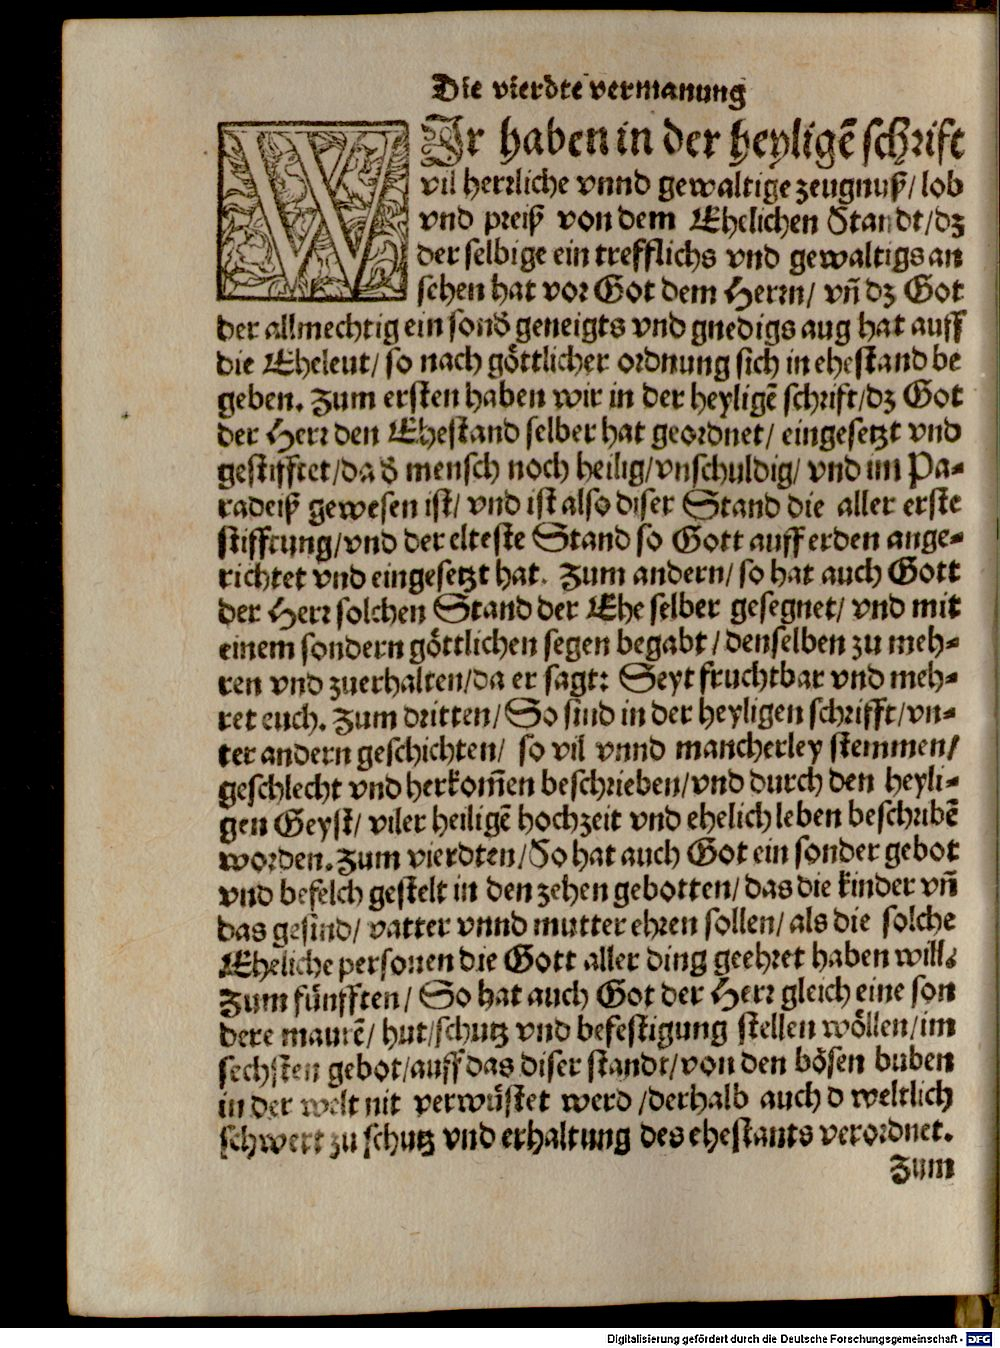 Die vierdte vermanung
WIr haben in der heyligẽ schrift
vil herrliche vnnd gewaltige zeugnuß/ lob
vnd preiß von dem Ehelichen Standt/dz
der selbige ein trefflichs vnd gewaltigs an
sehen hat vor Got dem Herrn/ vñ dz Got
der allmechtig ein sond̕ geneigts vnd gnedigs aug hat auff
die Eheleut/ so nach göttlicher ordnung sich in ehestand be
geben. Zum ersten haben wir in der heyligẽ schrift/dz Got
der Herr den Ehestand selber hat geordnet/ eingesetzt vnd
gestifftet/da d̕ mensch noch heilig/vnschuldig/ vnd im Pa-
radeiß gewesen ist/ vnd ist also diser Stand die aller erste
stifftung/vnd der elteste Stand so Gott auff erden ange-
richtet vnd eingesetzt hat. Zum andern/ so hat auch Gott
der Herr solchen Stand der Ehe selber gesegnet/ vnd mit
einem sondern göttlichen segen begabt/ denselben zu meh-
ren vnd zuerhalten/da er sagt: Seyt fruchtbar vnd meh-
ret euch. Zum dritten/ So sind in der heyligen schrifft/vn-
ter andern geschichten/ so vil vnnd mancherley stemmen/
geschlecht vnd herkom̃en beschrieben/vnd durch den heyli-
gen Geyst/ viler heiligẽ hochzeit vnd ehelich leben beschribẽ
worden. Zum vierdten/ So hat auch Got ein sonder gebot
vnd befelch gestelt in den zehen gebotten/ das die kinder vñ
das gesind/ vatter vnnd mutter ehren sollen/ als die solche
Eheliche personen die Gott aller ding geehret haben will.
Zum fünfften/ So hat auch Got der Herr gleich eine son
dere maurẽ/ hut/schutz vnd befestigung stellen wöllen/im
sechsten gebot/auff das diser standt/von den bösen buben
in der welt nit verwüstet werd/derhalb auch d weltlich
schwert zu schutz vnd erhaltung des ehestants verordnet.
Zum
Digitalisierung gefördert durch die Deutsche Forschungsgemeinschaft - DFG